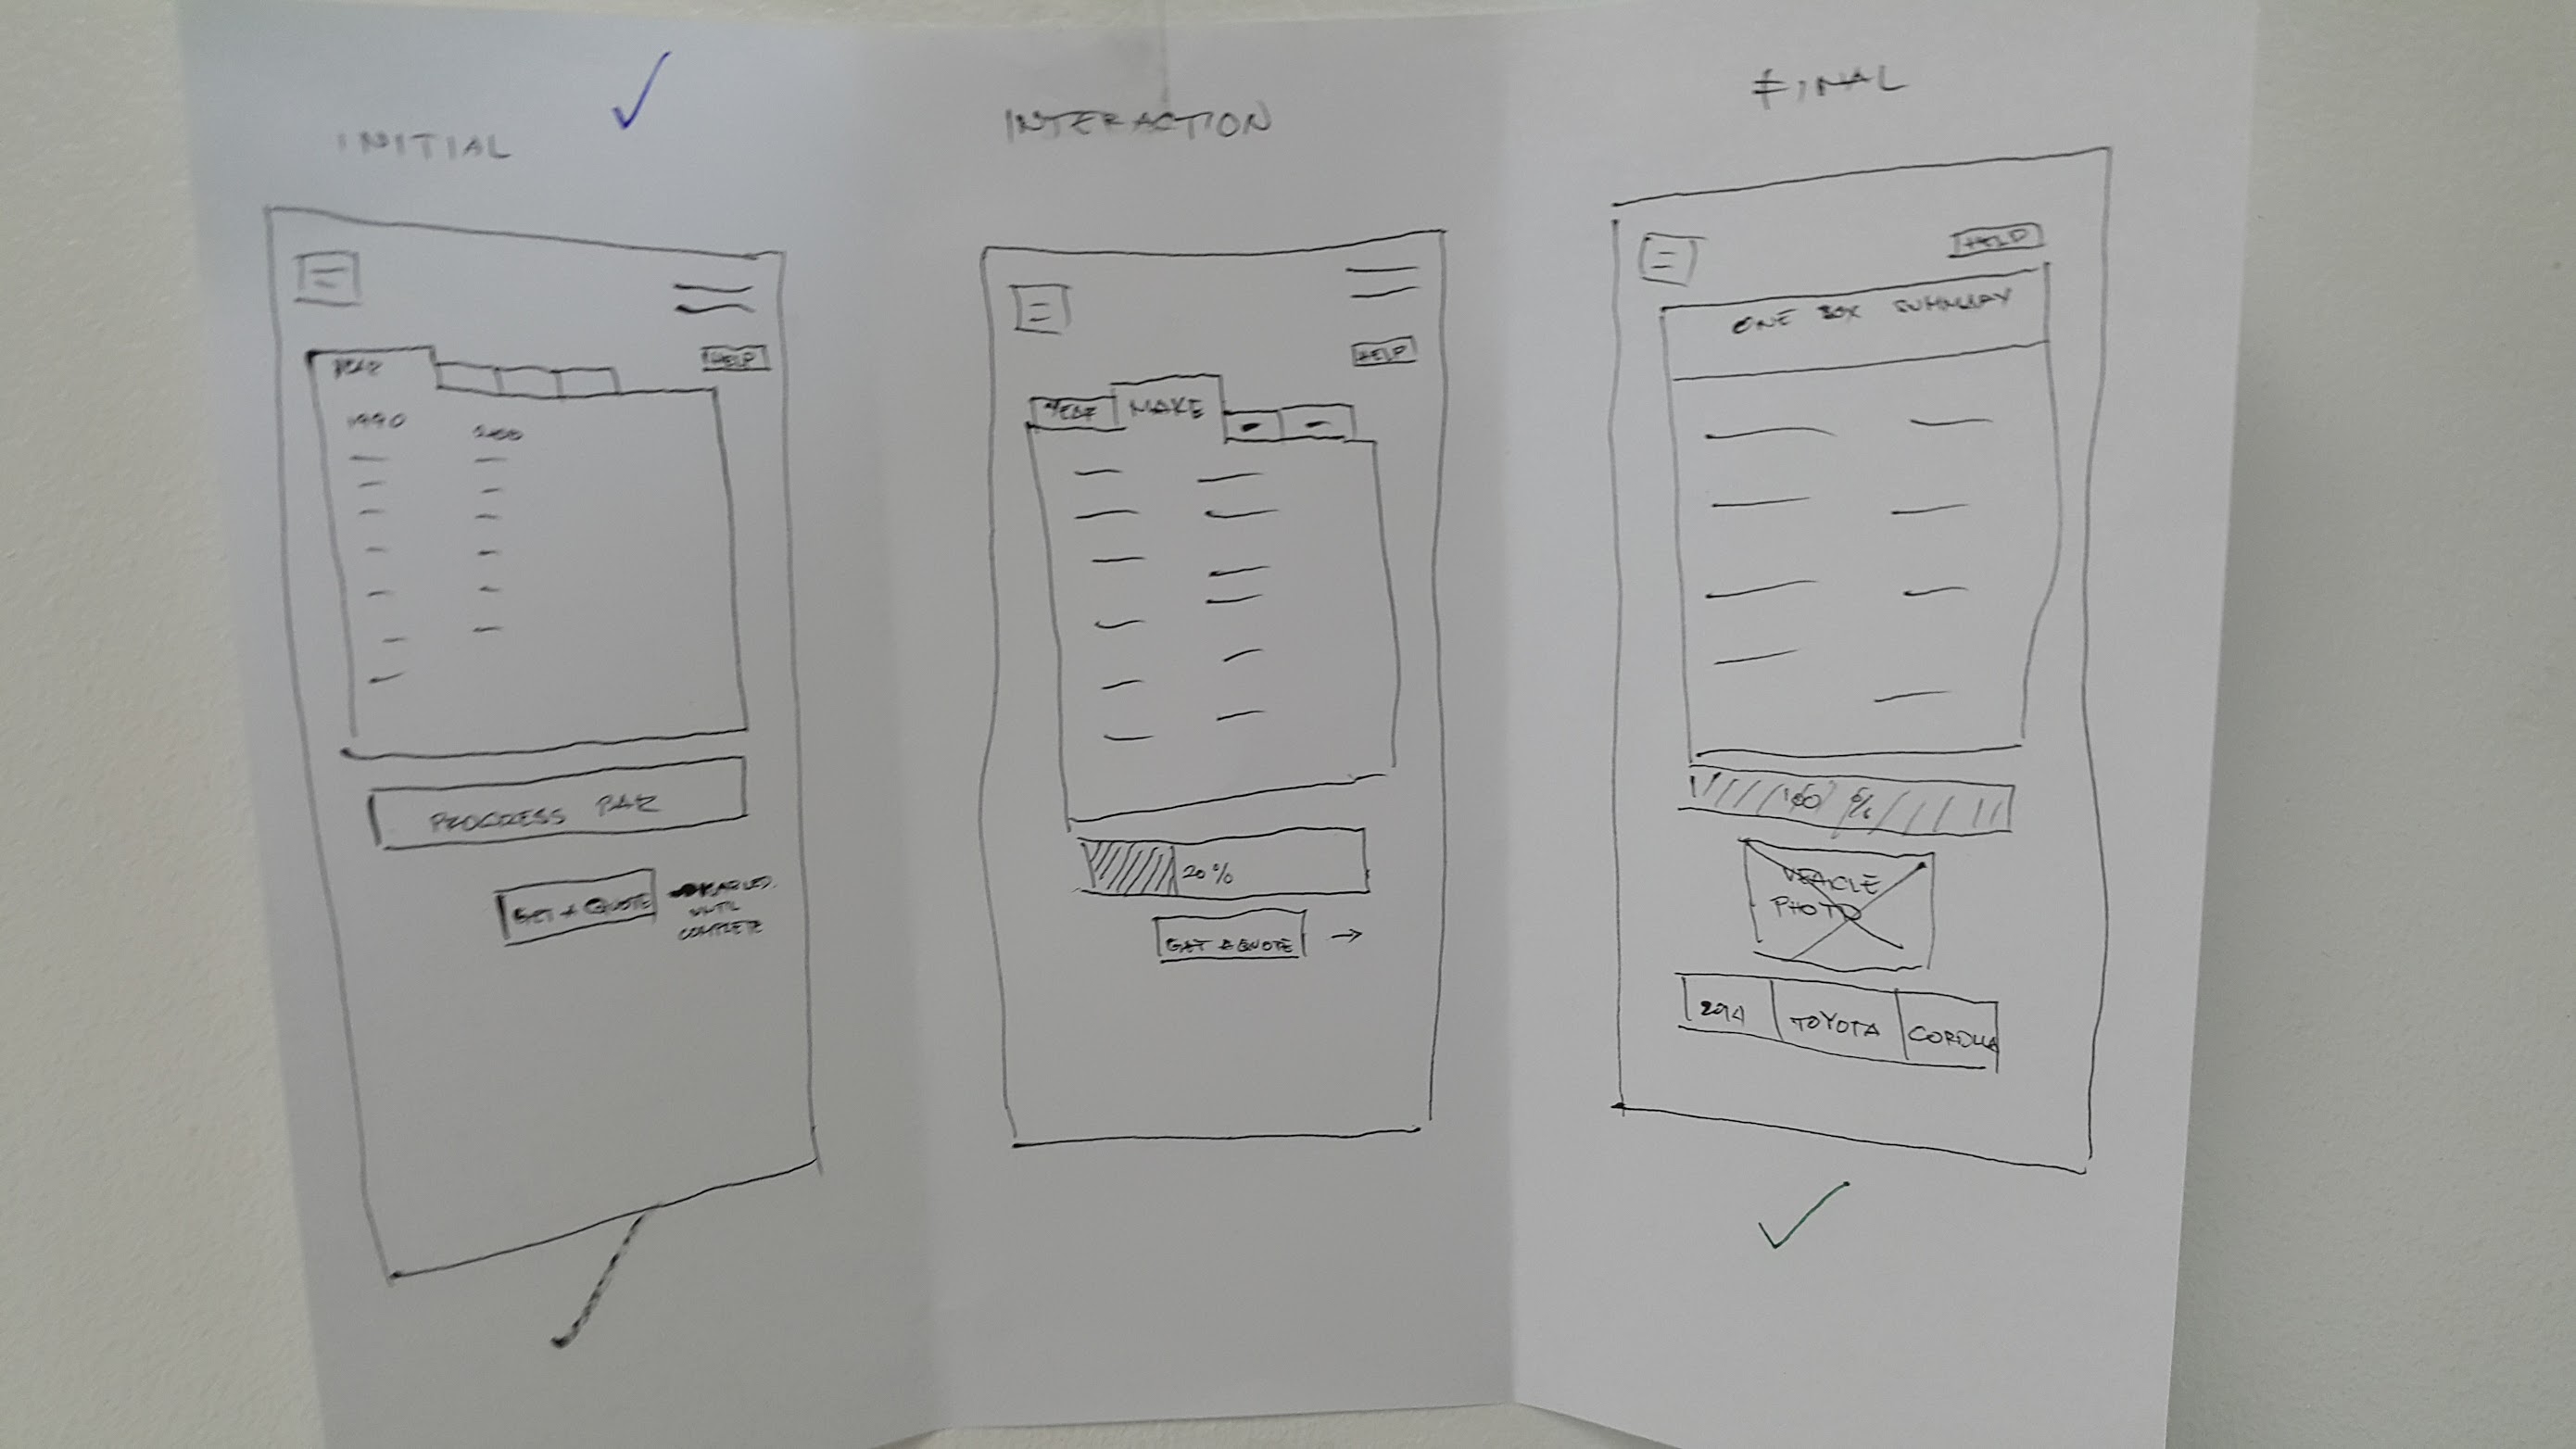 INITIAL
HELP
YEAR
1990
PROGRESS BAR
GET A QUOTE
UNTIL
COMPLETE
INTERACTION
HELP
YEAR MAKE
20%
GET A QUOTE →
FINAL
HELP
ONE BOX SUMMARY
100 %
VEHICLE
PHOTO
TOYOTA COROLLA